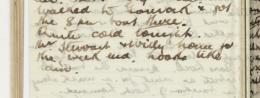 walked to Concord & got
the 8 p.m. boat there.
Quite cold tonight.
Mr Stewart & Wily home for
the week end. Looks like
rain.